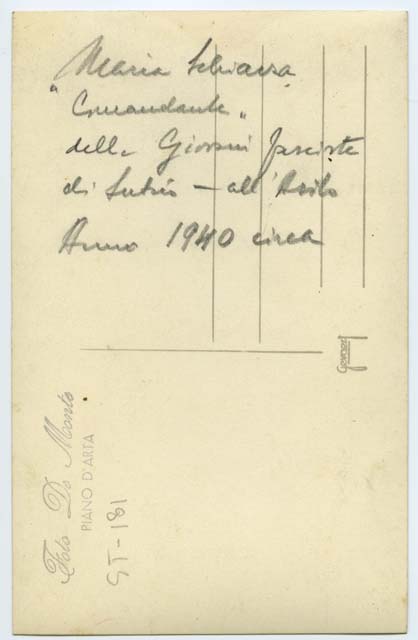 Maria Schiava
"Comandante"
delle Giovani fasciste
di Sutrio - all'Asilo
Anno 1940 circa
Foto Da Monte
PIANO D'ARTA
ST-181